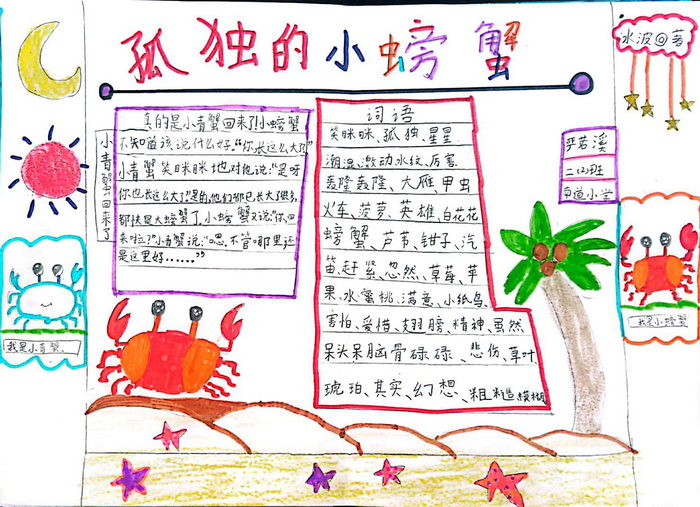 孤独的小螃蟹
冰波◎著
小青蟹回来了
真的是小青蟹回来了!小螃蟹
不知道该说什么好。“你长这么大了”
小青蟹笑眯眯地对他说:“是呀
你也长这么大了”是的,他们都已长大了很多,
都快是大螃蟹了。小螃蟹又说:“你回
来啦?”小青蟹说:“嗯,不管哪里还
是这里好……”
词语
笑眯眯、孤独、星星、
潮湿、激动水纹、厉害、
轰隆轰隆、大雁、甲虫
火车、菠萝、英雄、白花花
螃蟹、芦苇、钳子、汽
笛、赶紧、忽然、草莓、苹
果、水蜜桃、满意、小纸鸟、
害怕、爱惜、翅膀、精神、虽然、
呆头呆脑骨碌碌、悲伤、草叶、
琥珀、其实、幻想、粗糙、模糊
若溪
二(4)班
小学
我是小青蟹
我是小螃蟹